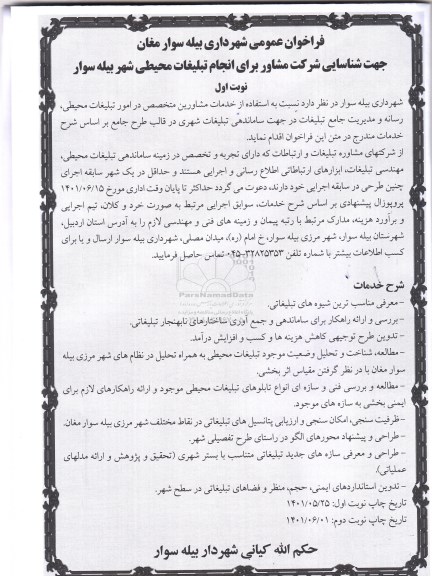 فراخوان عمومی شهرداری بیله سوار مغان
جهت شناسایی شرکت مشاور برای انجام تبلیغات محیطی شهر بیله سوار
نوبت اول
شهرداری بیله سوار در نظر دارد نسبت به استفاده از خدمات مشاورین متخصص در امور تبلیغات محیطی،
رسانه و مدیریت جامع تبلیغات در جهت ساماندهی تبلیغات شهری در قالب طرح جامع بر اساس شرح
خدمات مندرج در متن این فراخوان اقدام نماید.
از شرکتهای مشاوره تبلیغات و ارتباطات که دارای تجربه و تخصص در زمینه ساماندهی تبلیغات محیطی،
مهندسی تبلیغات، ابزارهای ارتباطاتی اطلاع رسانی و اجرایی هستند و حداقل در یک شهر سابقه اجرای
چنین طرحی در سابقه اجرایی خود دارند، دعوت می گردد حداکثر تا پایان وقت اداری مورخ ۱۴۰۱/۰۶/۱۵
پروپوزال پیشنهادی بر اساس شرح خدمات، سوابق اجرایی مرتبط به صورت خرد و کلان، تیم اجرایی
و برآورد هزینه، مدارک مرتبط با رتبه پیمان و زمینه های فنی و مهندسی لازم را به آدرس استان اردبیل،
شهرستان بیله سوار، شهر مرزی بیله سوار، خ امام (ره)، میدان مصلی، شهرداری بیله سوار ارسال و یا برای
کسب اطلاعات بیشتر با شماره تلفن ۳۲۸۲۵۳۵۳-۰۴۵ تماس حاصل فرمایید.
شرح خدمات
- معرفی مناسب ترین شیوه های تبلیغاتی.
- بررسی و ارائه راهکار برای ساماندهی و جمع آوری ساختارهای نابهنجار تبلیغاتی.
- تدوین طرح توجیهی کاهش هزینه ها و کسب و افزایش درآمد.
- مطالعه، شناخت و تحلیل وضعیت موجود تبلیغات محیطی به همراه تحلیل در نظام های شهر مرزی بیله
سوار مغان با در نظر گرفتن مقیاس اثر بخشی.
- مطالعه و بررسی فنی و سازه ای انواع تابلوهای تبلیغات محیطی موجود و ارائه راهکارهای لازم برای
ایمنی بخشی به سازه های موجود.
- ظرفیت سنجی، امکان سنجی و ارزیابی پتانسیل های تبلیغاتی در نقاط مختلف شهر مرزی بیله سوار مغان.
- طراحی و پیشنهاد محورهای الگو در راستای طرح تفصیلی شهر.
- طراحی و معرفی سازه های جدید تبلیغاتی متناسب با بستر شهری (تحقیق و پژوهش و ارائه مدلهای
عملیاتی).
- تدوین استانداردهای ایمنی، حجم، منظر و فضاهای تبلیغاتی در سطح شهر.
تاریخ چاپ نوبت اول: ۱۴۰۱/۰۵/۲۵
تاریخ چاپ نوبت دوم: ۱۴۰۱/۰۶/۰۱
حکم الله کیانی شهردار بیله سوار